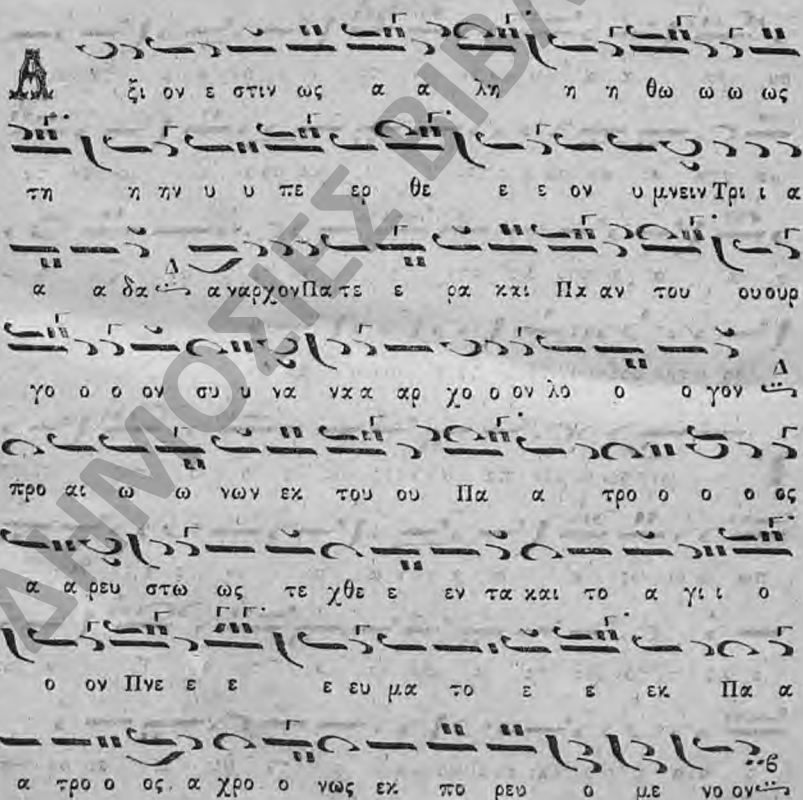 Α ξι ον ε στιν ως α α λη η η θω ω ω ως
τη η ην υ υ πε ερ θε ε ε ον υ μνειν Τρι ι α
α α δα Δ α ναρχον Πα τε ε ρα και Πα αν του ου ουρ
γο ο ο ον συ υ να να α αρ χο ο ον λο ο ο γον Δ
προ αι ω ω νων εκ του ου Πα α τρο ο ο ο ος
α α ρευ στω ως τε χθε ε εν τα και το α γι ι ο
ο ον Πνε ε ε ε ευ μα το ε ε εκ Πα α
α τρο ο ος α χρο ο νως εκ πο ρευ ο με νο ον
ΔΗΜΟΣΙΕΣ ΒΙΒΛ